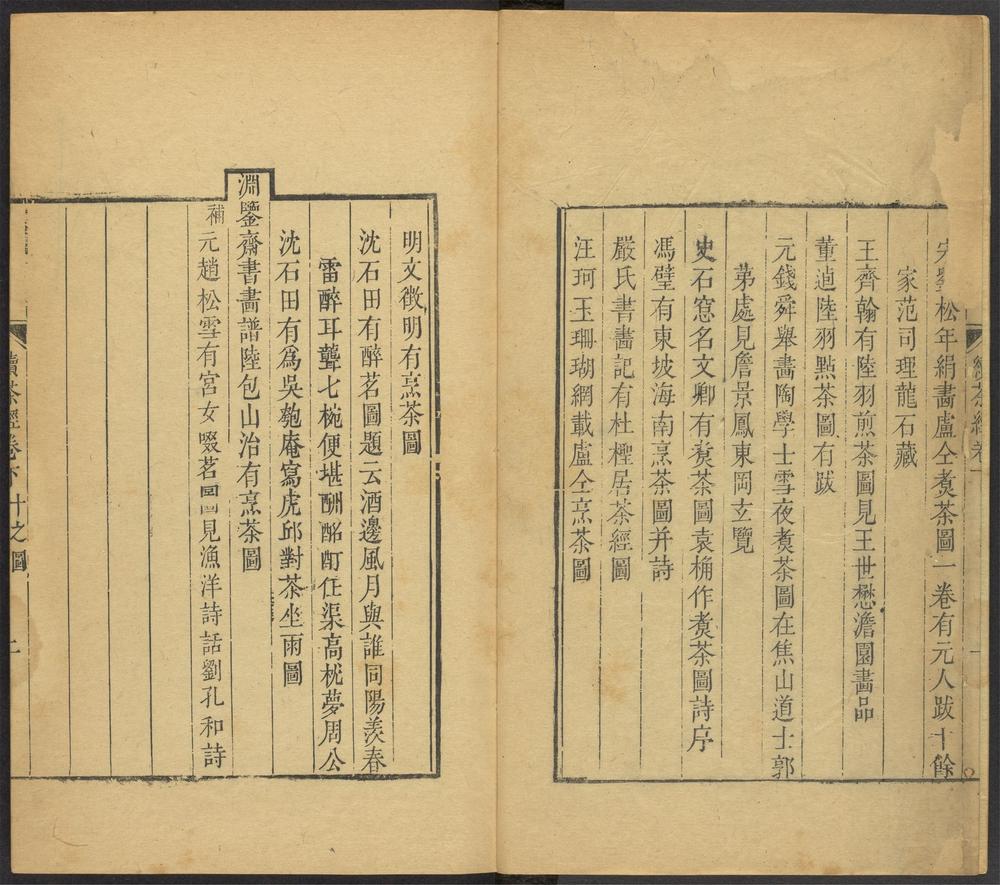 宋劉松年絹畵盧仝煑茶圖一卷有元人跋十餘
家范司理龍石藏
王齊翰有陸羽煎茶圖見王世懋澹園畵品
董逌陸羽㸃茶圖有跋
元錢舜舉畵陶學士雪夜煑茶圖在焦山道士郭
苐處見詹景鳳東岡玄覽
史石窓名文卿有煑茶圖袁桷作煑茶圖詩序
馮璧有東坡海南烹茶圖并詩
嚴氏書畵記有杜檉居茶經圖
汪珂玉珊瑚網載盧仝烹茶圖
續茶經卷
明文徵明有烹茶圖
沈石田有醉茗圖題云酒邊風月與誰同陽羨春
雷醉耳聾七椀便堪酬酩酊任渠高枕夢周公
沈石田有爲吳匏庵寫虎邱對茶坐雨圖
淵鑒齋書畵譜陸包山治有烹茶圖
補元趙松雪有宮女啜茗圖見漁洋詩話劉孔和詩
續茶經卷下 十之圖 二